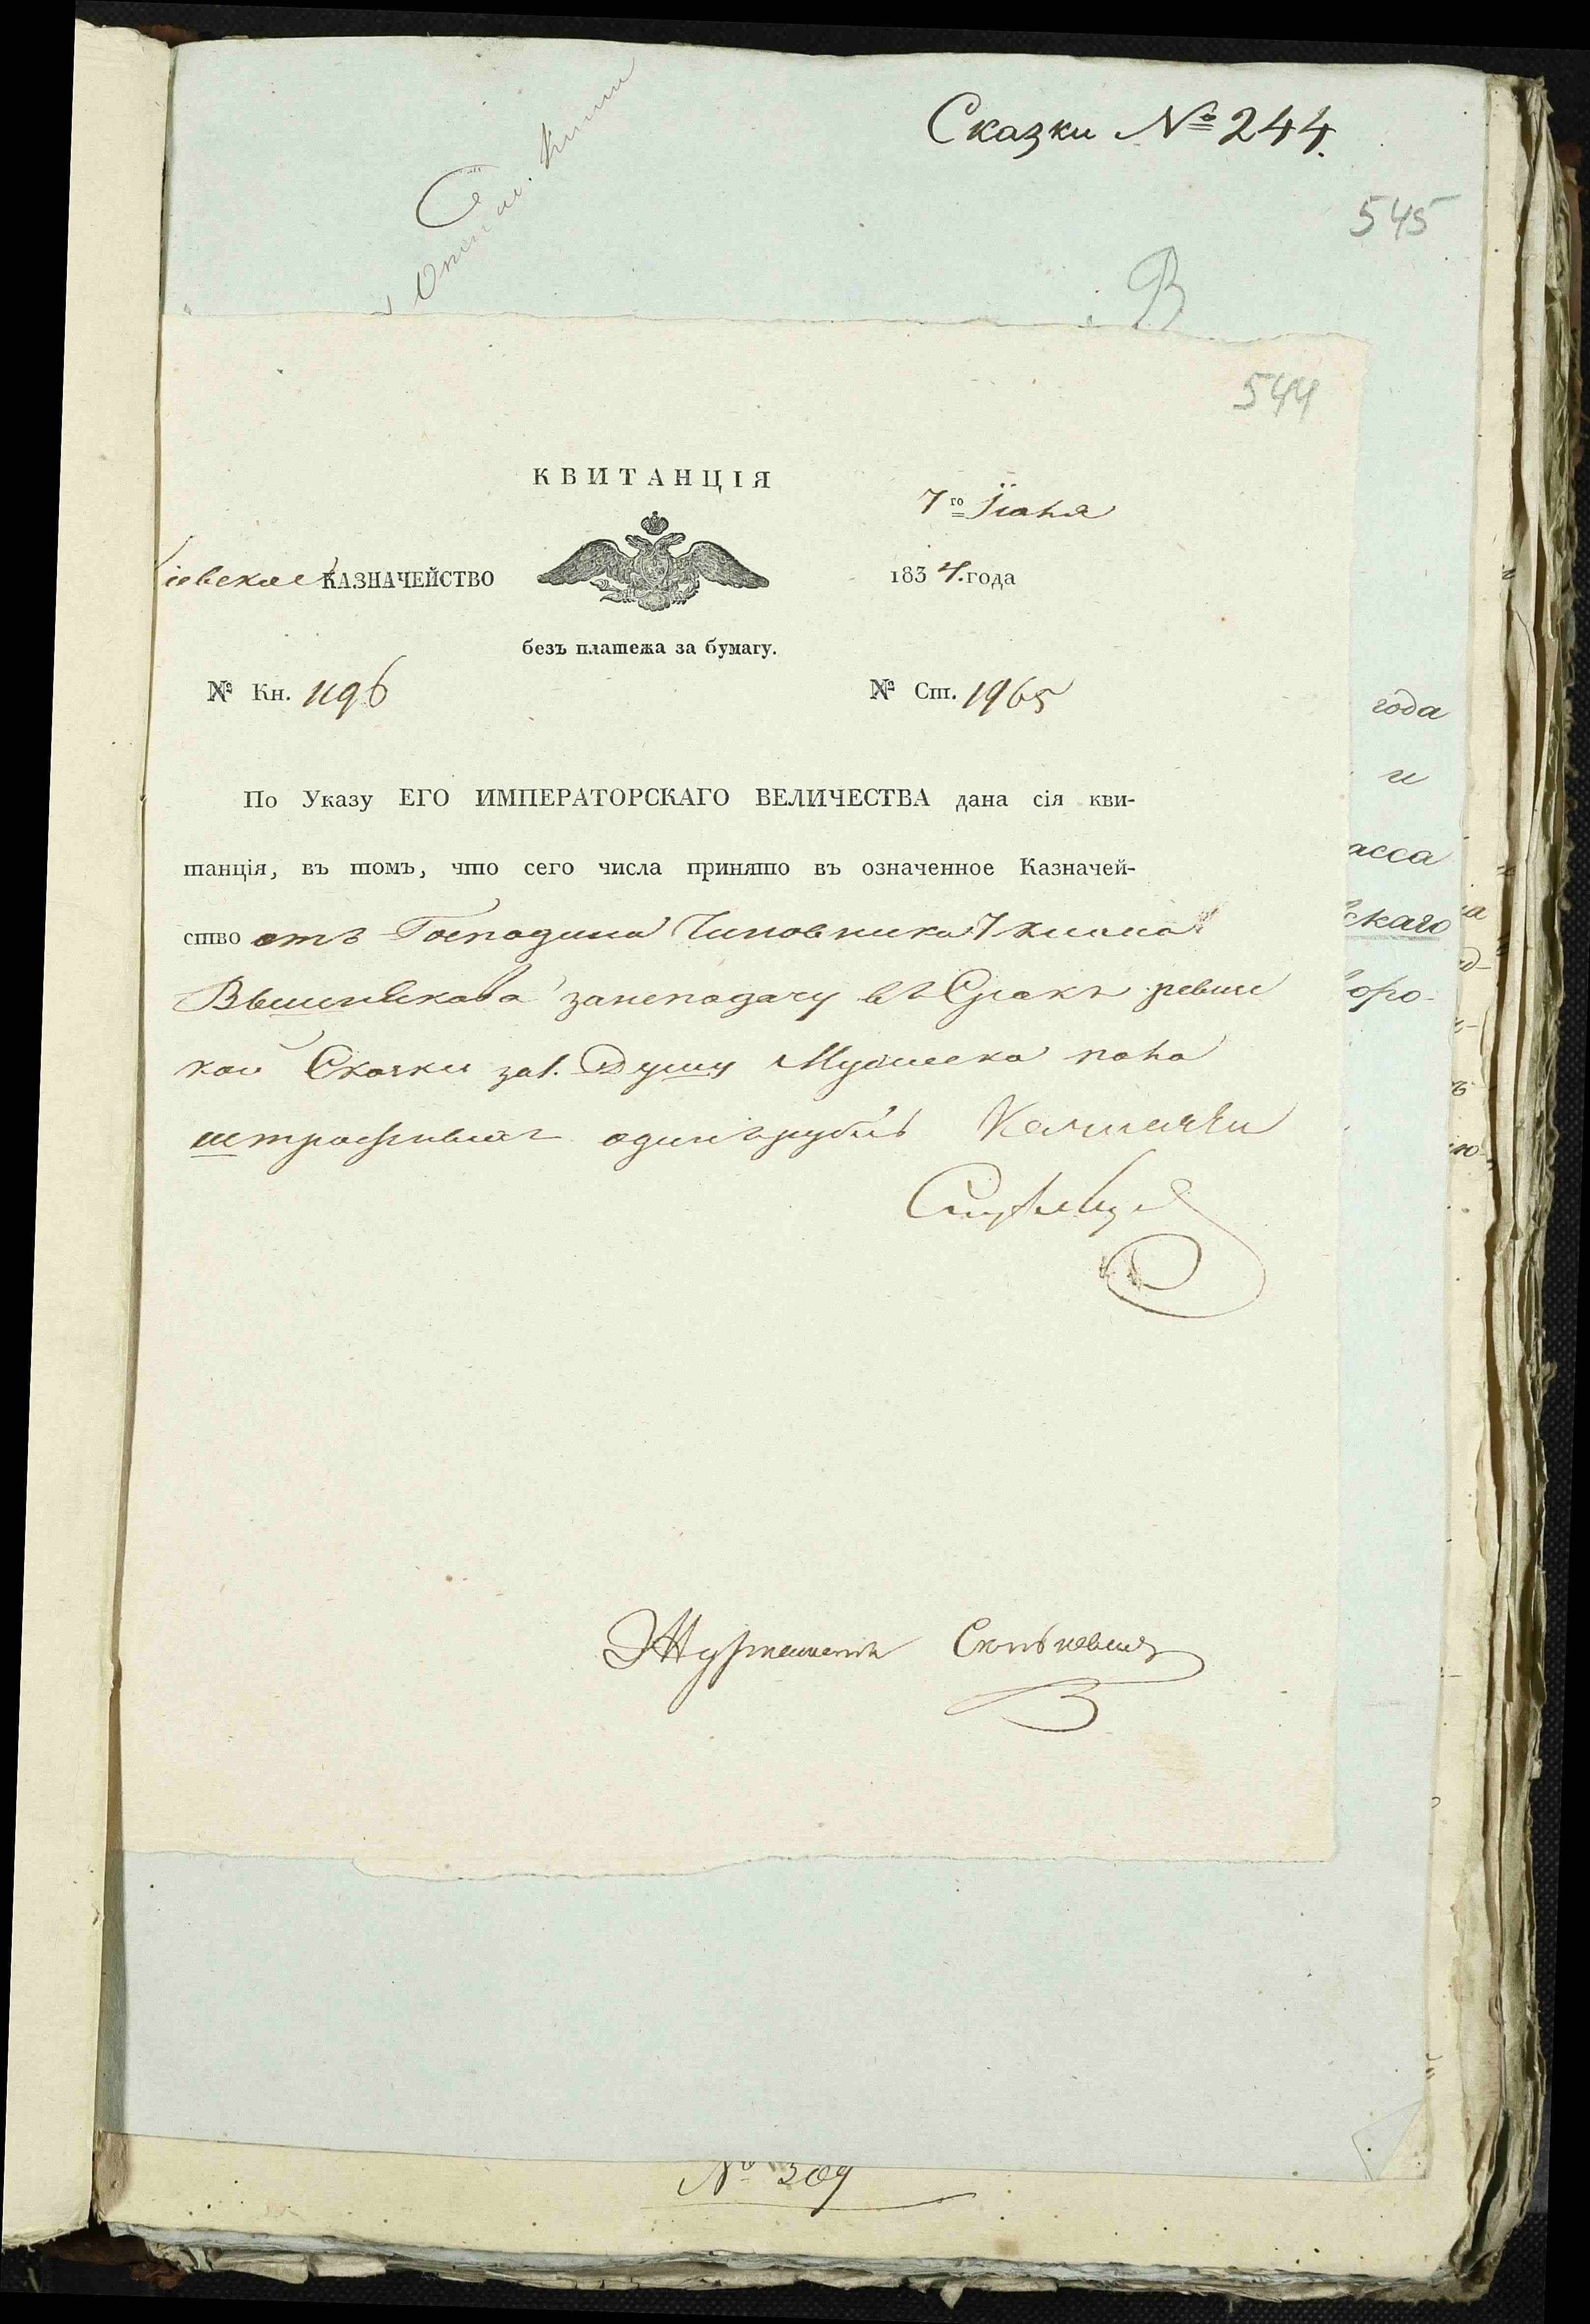 Сказки № 244.
545
В
544
КВИТАНЦІЯ
7го Іюня
іевское КАЗНАЧЕЙСТВО
1834.года
безъ платежа за бумагу.
№ Кн. 1196
№ Ст. 1965
По Указу ЕГО ИМПЕРАТОРСКАГО ВЕЛИЧЕСТВА дана сія кви-
танція, въ томъ, что сего числа принято въ означенное Казначей-
ство отъ Господина Чиновника
за неподачу въ Срокъ ревис
кой Сказки за 1. Душу Мужеска пола
штрафныхъ одинъ рубль
года
и
асса
скаго
оро-
№ 309